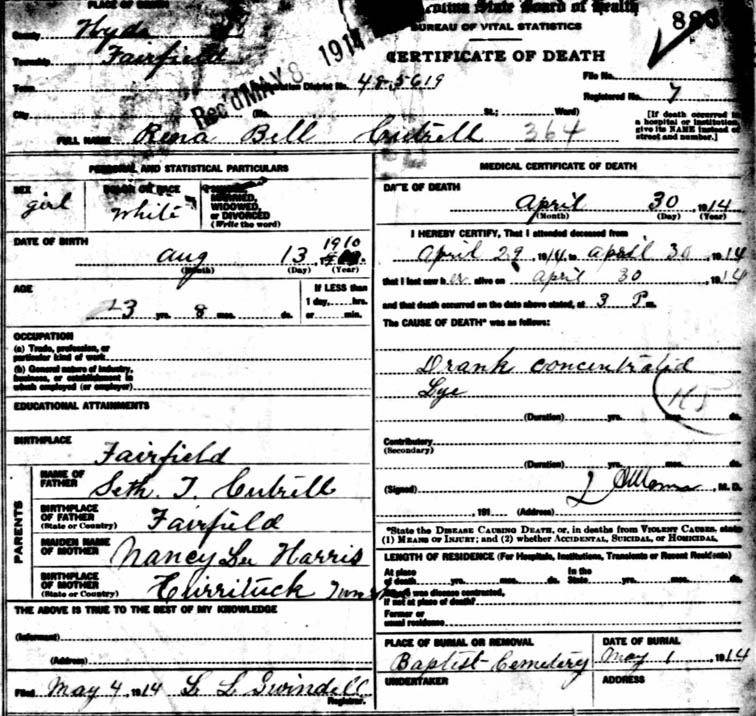 PLACE OF DEATH
County Hyde
Township Fairfield
Town
City
Rec'd MAY 8 1914
State Board of Health
BUREAU OF VITAL STATISTICS
CERTIFICATE OF DEATH
District No. 48-5619
File No.
Registered No. 7
(No. St.; Ward)
[If death occurred in a hospital or institution, give its NAME instead of street and number.]
FULL NAME Rena Bell Cutrell 364
PERSONAL AND STATISTICAL PARTICULARS
SEX girl
COLOR OR RACE White
MARRIED, WIDOWED, or DIVORCED (Write the word)
DATE OF BIRTH Aug 13 1910
(Month) (Day) (Year)
AGE 3 yrs. 8 mos. ds.
If LESS than 1 day,...hrs. or...min.
OCCUPATION
(a) Trade, profession, or particular kind of work
(b) General nature of industry, business, or establishment in which employed (or employer)
EDUCATIONAL ATTAINMENTS
BIRTHPLACE Fairfield
PARENTS
NAME OF FATHER Seth. T. Cutrell
BIRTHPLACE OF FATHER (State or Country) Fairfield
MAIDEN NAME OF MOTHER Nancy Lee Harris
BIRTHPLACE OF MOTHER (State or Country) Currituck
THE ABOVE IS TRUE TO THE BEST OF MY KNOWLEDGE
(Informant)
(Address)
Filed May 4, 1914 L L Swindell
Registrar.
MEDICAL CERTIFICATE OF DEATH
DATE OF DEATH
April 30, 1914
(Month) (Day) (Year)
I HEREBY CERTIFY, That I attended deceased from
April 29, 1914, to April 30 1914
that I last saw her alive on April 30 1914
and that death occurred on the date above stated, at 3 P m.
The CAUSE OF DEATH* was as follows:
Drank concentrated
Lye
(Duration) yrs. mos. ds.
Contributory
(Secondary)
(Duration) yrs. mos. ds.
(Signed) M. D.
, 191 (Address)
*State the DISEASE CAUSING DEATH, or, in deaths from VIOLENT CAUSES, state
(1) MEANS OF INJURY; and (2) whether ACCIDENTAL, SUICIDAL, or HOMICIDAL.
LENGTH OF RESIDENCE (For Hospitals, Institutions, Transients or Recent Residents)
At place of death yrs. mos. ds. In the State yrs. mos. ds.
Where was disease contracted, if not at place of death?
Former or usual residence
PLACE OF BURIAL OR REMOVAL
Baptist Cemetery
DATE OF BURIAL
May 1, 1914
UNDERTAKER
ADDRESS